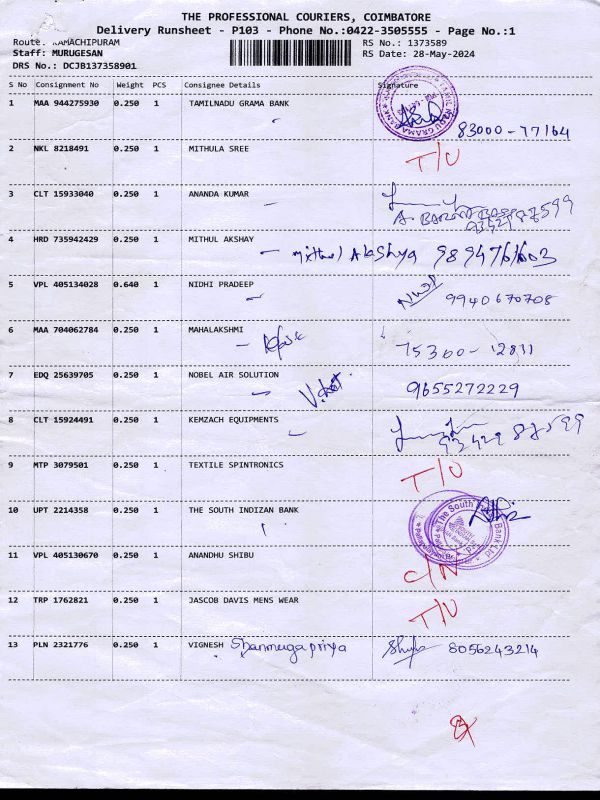 THE PROFESSIONAL COURIERS, COIMBATORE
Delivery Runsheet - P103 - Phone No.:0422-3505555 - Page No.:1
Route: RAMACHIPURAM
RS No.: 1373589
Staff: MURUGESAN
RS Date: 28-May-2024
DRS No.: DCJB137358901
S No Consignment No Weight PCS Consignee Details Signature
1 MAA 944275930 0.250 1 TAMILNADU GRAMA BANK
83000-77164
2 NKL 8218491 0.250 1 MITHULA SREE T/U
3 CLT 15933040 0.250 1 ANANDA KUMAR
4 HRD 735942429 0.250 1 MITHUL AKSHAY Mithul Akshya 9894761603
5 VPL 405134028 0.640 1 NIDHI PRADEEP 9940670708
6 MAA 704062784 0.250 1 MAHALAKSHMI 75300-12811
7 EDQ 25639705 0.250 1 NOBEL AIR SOLUTION 9655272229
8 CLT 15924491 0.250 1 KEMZACH EQUIPMENTS 93429 87599
9 MTP 3079501 0.250 1 TEXTILE SPINTRONICS T/U
10 UPT 2214358 0.250 1 THE SOUTH INDIZAN BANK
The South Bank Ltd
11 VPL 405130670 0.250 1 ANANDHU SHIBU C/N
12 TRP 1762821 0.250 1 JASCOB DAVIS MENS WEAR T/U
13 PLN 2321776 0.250 1 VIGNESH Shanmuga priya 8056243214